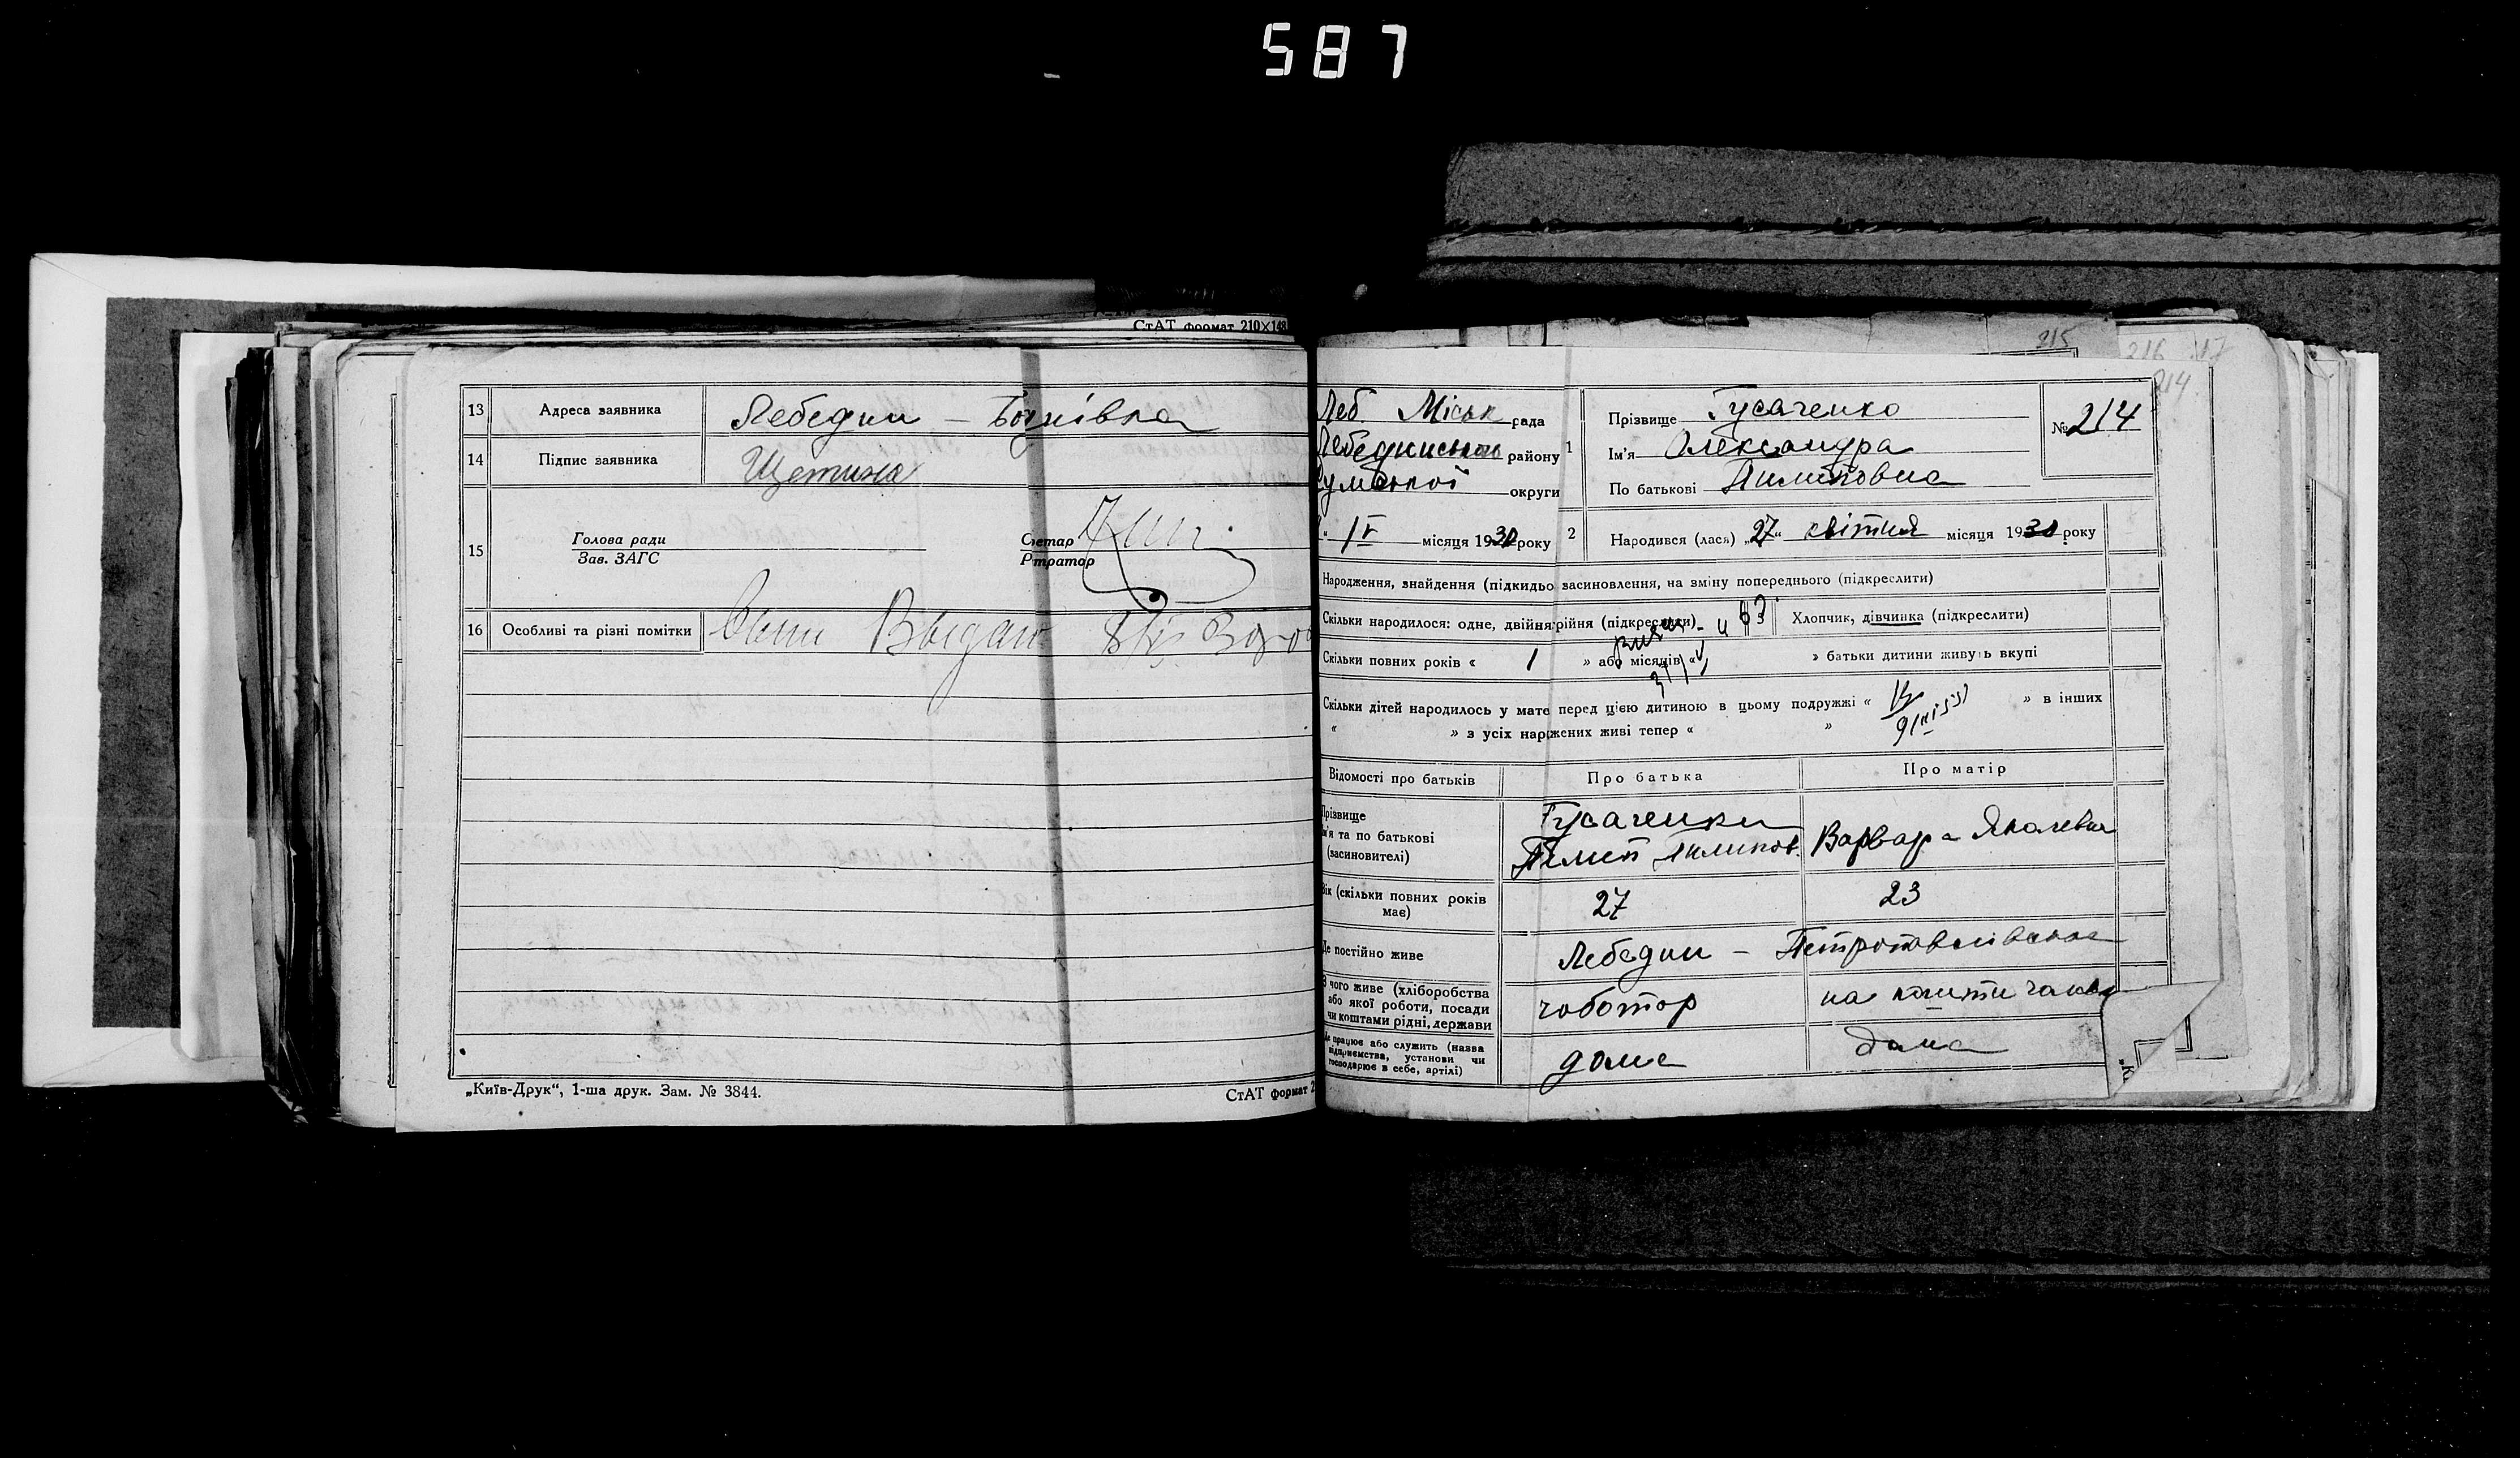 587
СтАТ формат 210×148
13 Адреса заявника Лебедин — Боднівка
14 Підпис заявника Щетина
15 Голова ради
Зав. ЗАГС
16 Особливі та різні помітки
„Київ-Друк“, 1-ша друк. Зам. № 3844.
СтАТ формат 2
215
216 217
214
Леб. Міськ рада
Лебединського району
Сумської округи
№ 214
1 Прізвище Гусаченко
Ім'я Олександра
По батькові Пилиповна
„ IV місяця 1930 року
2 Народився (лася) „27“ квітня місяця 1930 року
Народження, знайдення (підкидьо засиновлення, на зміну попереднього (підкреслити)
Скільки народилося: одне, двійня рійня (підкреслити) Хлопчик, дівчинка (підкреслити)
Скільки повних років « 1 » або місяців « » батьки дитини живуть вкупі
Скільки дітей народилось у мате перед цією дитиною в цьому подружжі « » в інших
« » з усіх нар жених живі тепер « »
Відомості про батьків Про батька Про матір
Прізвище
ім'я та по батькові
(засиновителі)
Гусаченки
Пилип Пилипов. Варвара Яковлевна
Вік (скільки повних років має) 27 23
Де постійно живе Лебедин — Петропавлівська
З чого живе (хліборобства
або якої роботи, посади
чи коштами рідні, держави
чоботар на кошти чолов
Де працює або служить (назва
підприємства, установи чи
господарює в себе, артілі)
дома дома